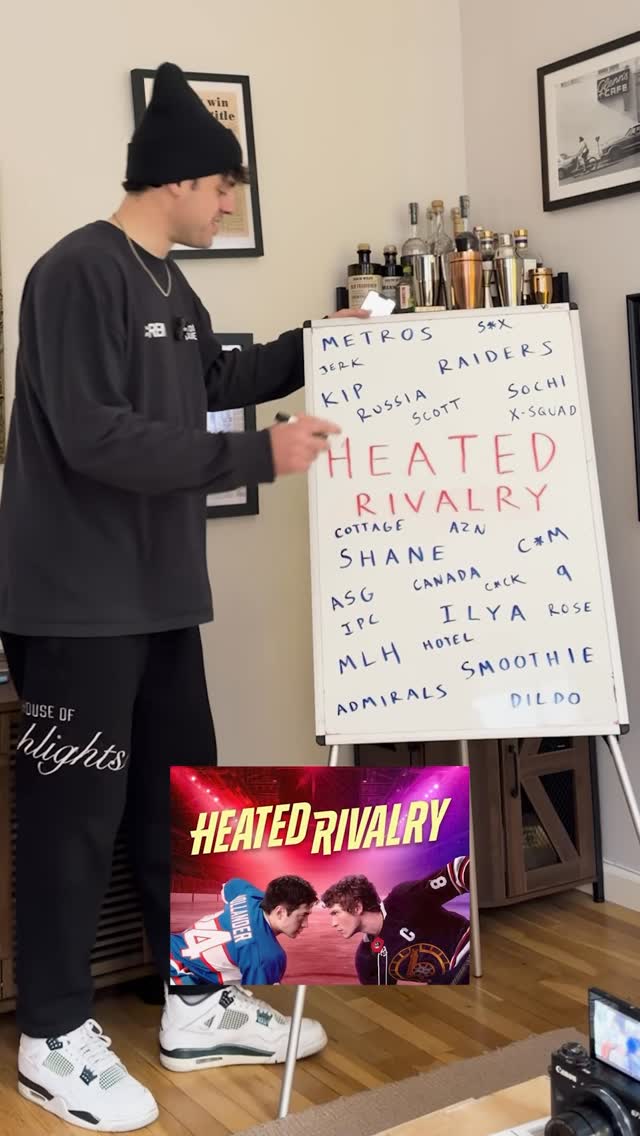 win
title
Glenn's
CAFE
METROS S*X
JERK RAIDERS
KIP RUSSIA SCOTT SOCHI
X-SQUAD
HEATED
RIVALRY
COTTAGE AZN
SHANE C*M
ASG CANADA C*CK 9
IPC ILYA ROSE
MLH HOTEL
SMOOTHIE
ADMIRALS DILDO
HOUSE OF
hlights
HEATED RIVALRY
HOLLANDER
24
8
C
Canon